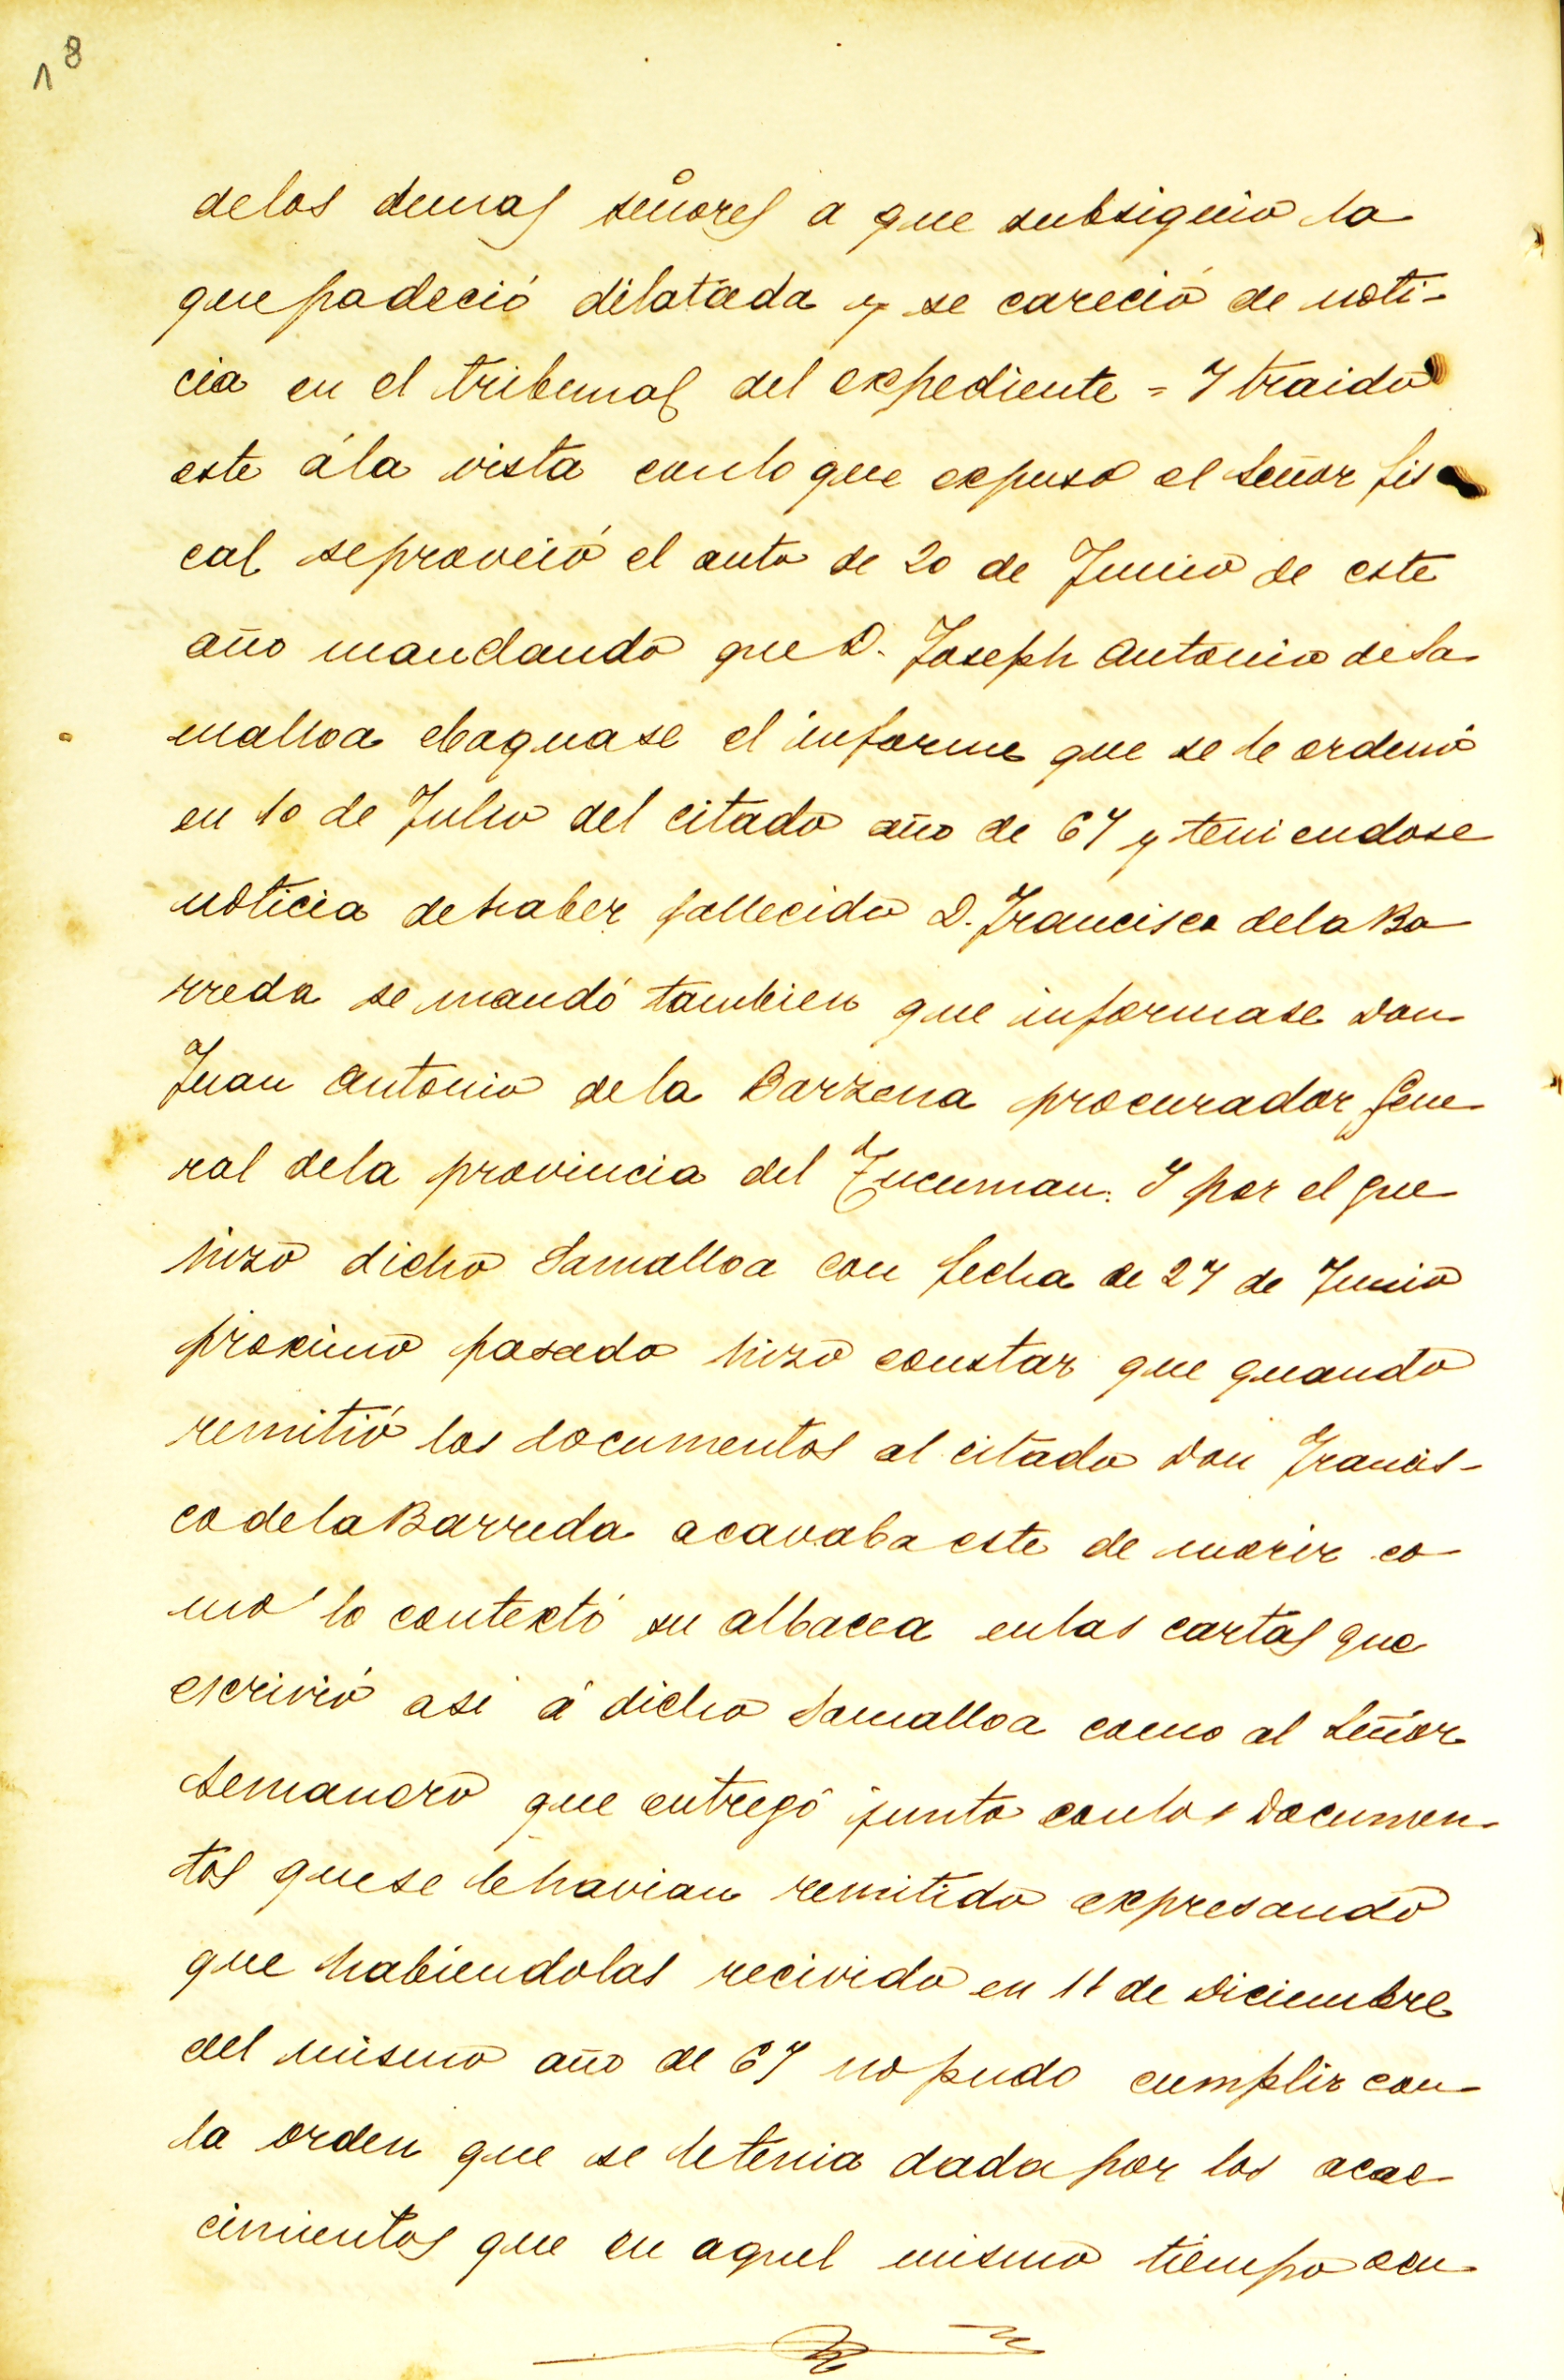 18
delos demas señores a que subsiguió la
que padeció dilatada y se careció de noti-
cia en el tribunal del expediente = Y traido
este á la vista conlo que expuso el Señor fis
cal seproveió el auto de 20 de Junio de este
año mandando que D. Joseph Antonio de Sa
malloa ebaquase el informe que se le ordenó
en 10 de Julio del citado año de 67 y teniendose
noticia dehaber fallecido D. Francisco dela Ba
rreda se mandó tambien que informase Don
Juan Antonio de la Barzena procurador Gene
ral dela provincia del Tucuman. Y por el que
hizo dicho Samalloa con fecha de 27 de Junio
proximo pasado hizo constar que quando
remitió los documentos al citado Don Francis-
co de la Barreda acavaba este de morir co
mo lo contextó su albacea enlas cartas que
escrivió asi á dicho Samalloa como al Señor
Semanero que entregó junto conlos Documen-
tos quese lehavian remitido expresando
que habiendolas recivido en 11 de Diciembre
del mismo año de 67 no pudo cumplir con
la orden que se letenia dada por los acae-
cimientos que en aquel mismo tiempo ocu